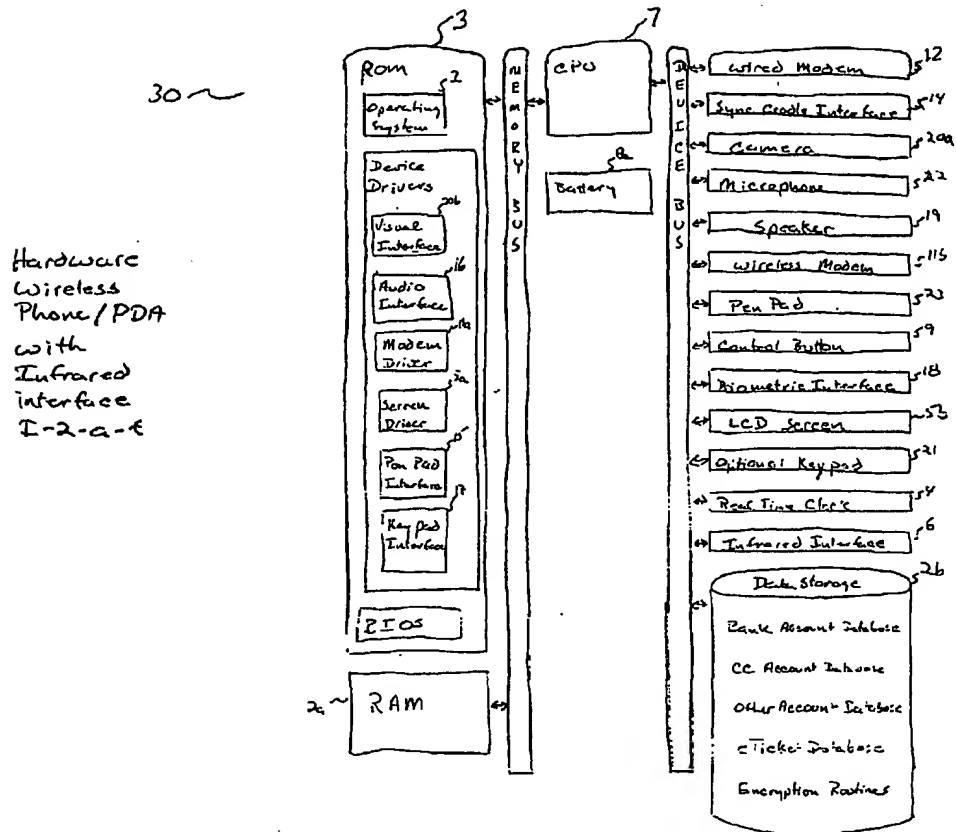 30
Hardware
Wireless
Phone/PDA
with
Infrared
interface
I-2-a-t
3
ROM
2
Operating
System
Device
Drivers
20b
Visual
Interface
16
Audio
Interface
Modem
Driver
Screen
Driver
15
Pen Pad
Interface
17
Keypad
Interface
BIOS
2a
RAM
MEMORY BUS
7
CPU
8a
Battery
DEVICE BUS
Wired Modem 12
Sync Cradle Interface 14
Camera 20a
Microphone 22
Speaker 19
Wireless Modem 11b
Pen Pad 23
Control Button 9
Biometric Interface 18
LCD Screen
Optional Keypad 21
Real Time Clock
Infrared Interface 6
Data Storage 26
Bank Account Database
CC Account Database
Other Account Database
eTicket Database
Encryption Routines